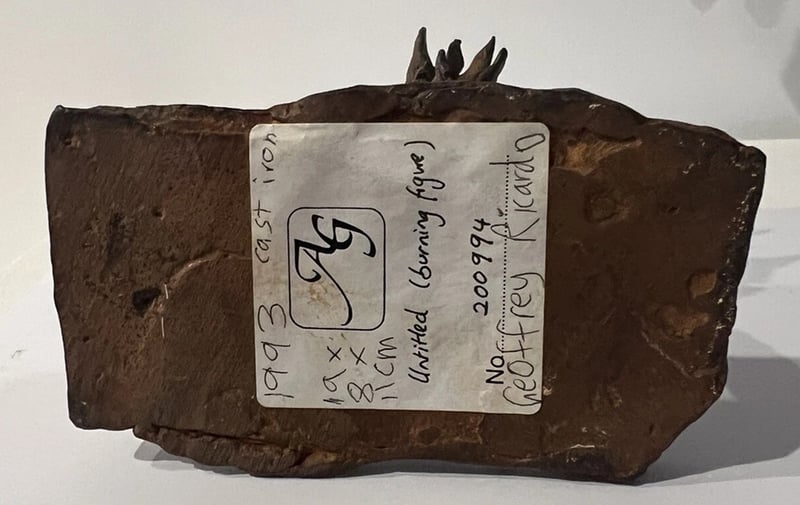 1993 cast iron
19 x
8 x
11 cm
AG
Untitled (burning figure)
200994
No.
Geoffrey Ricardo